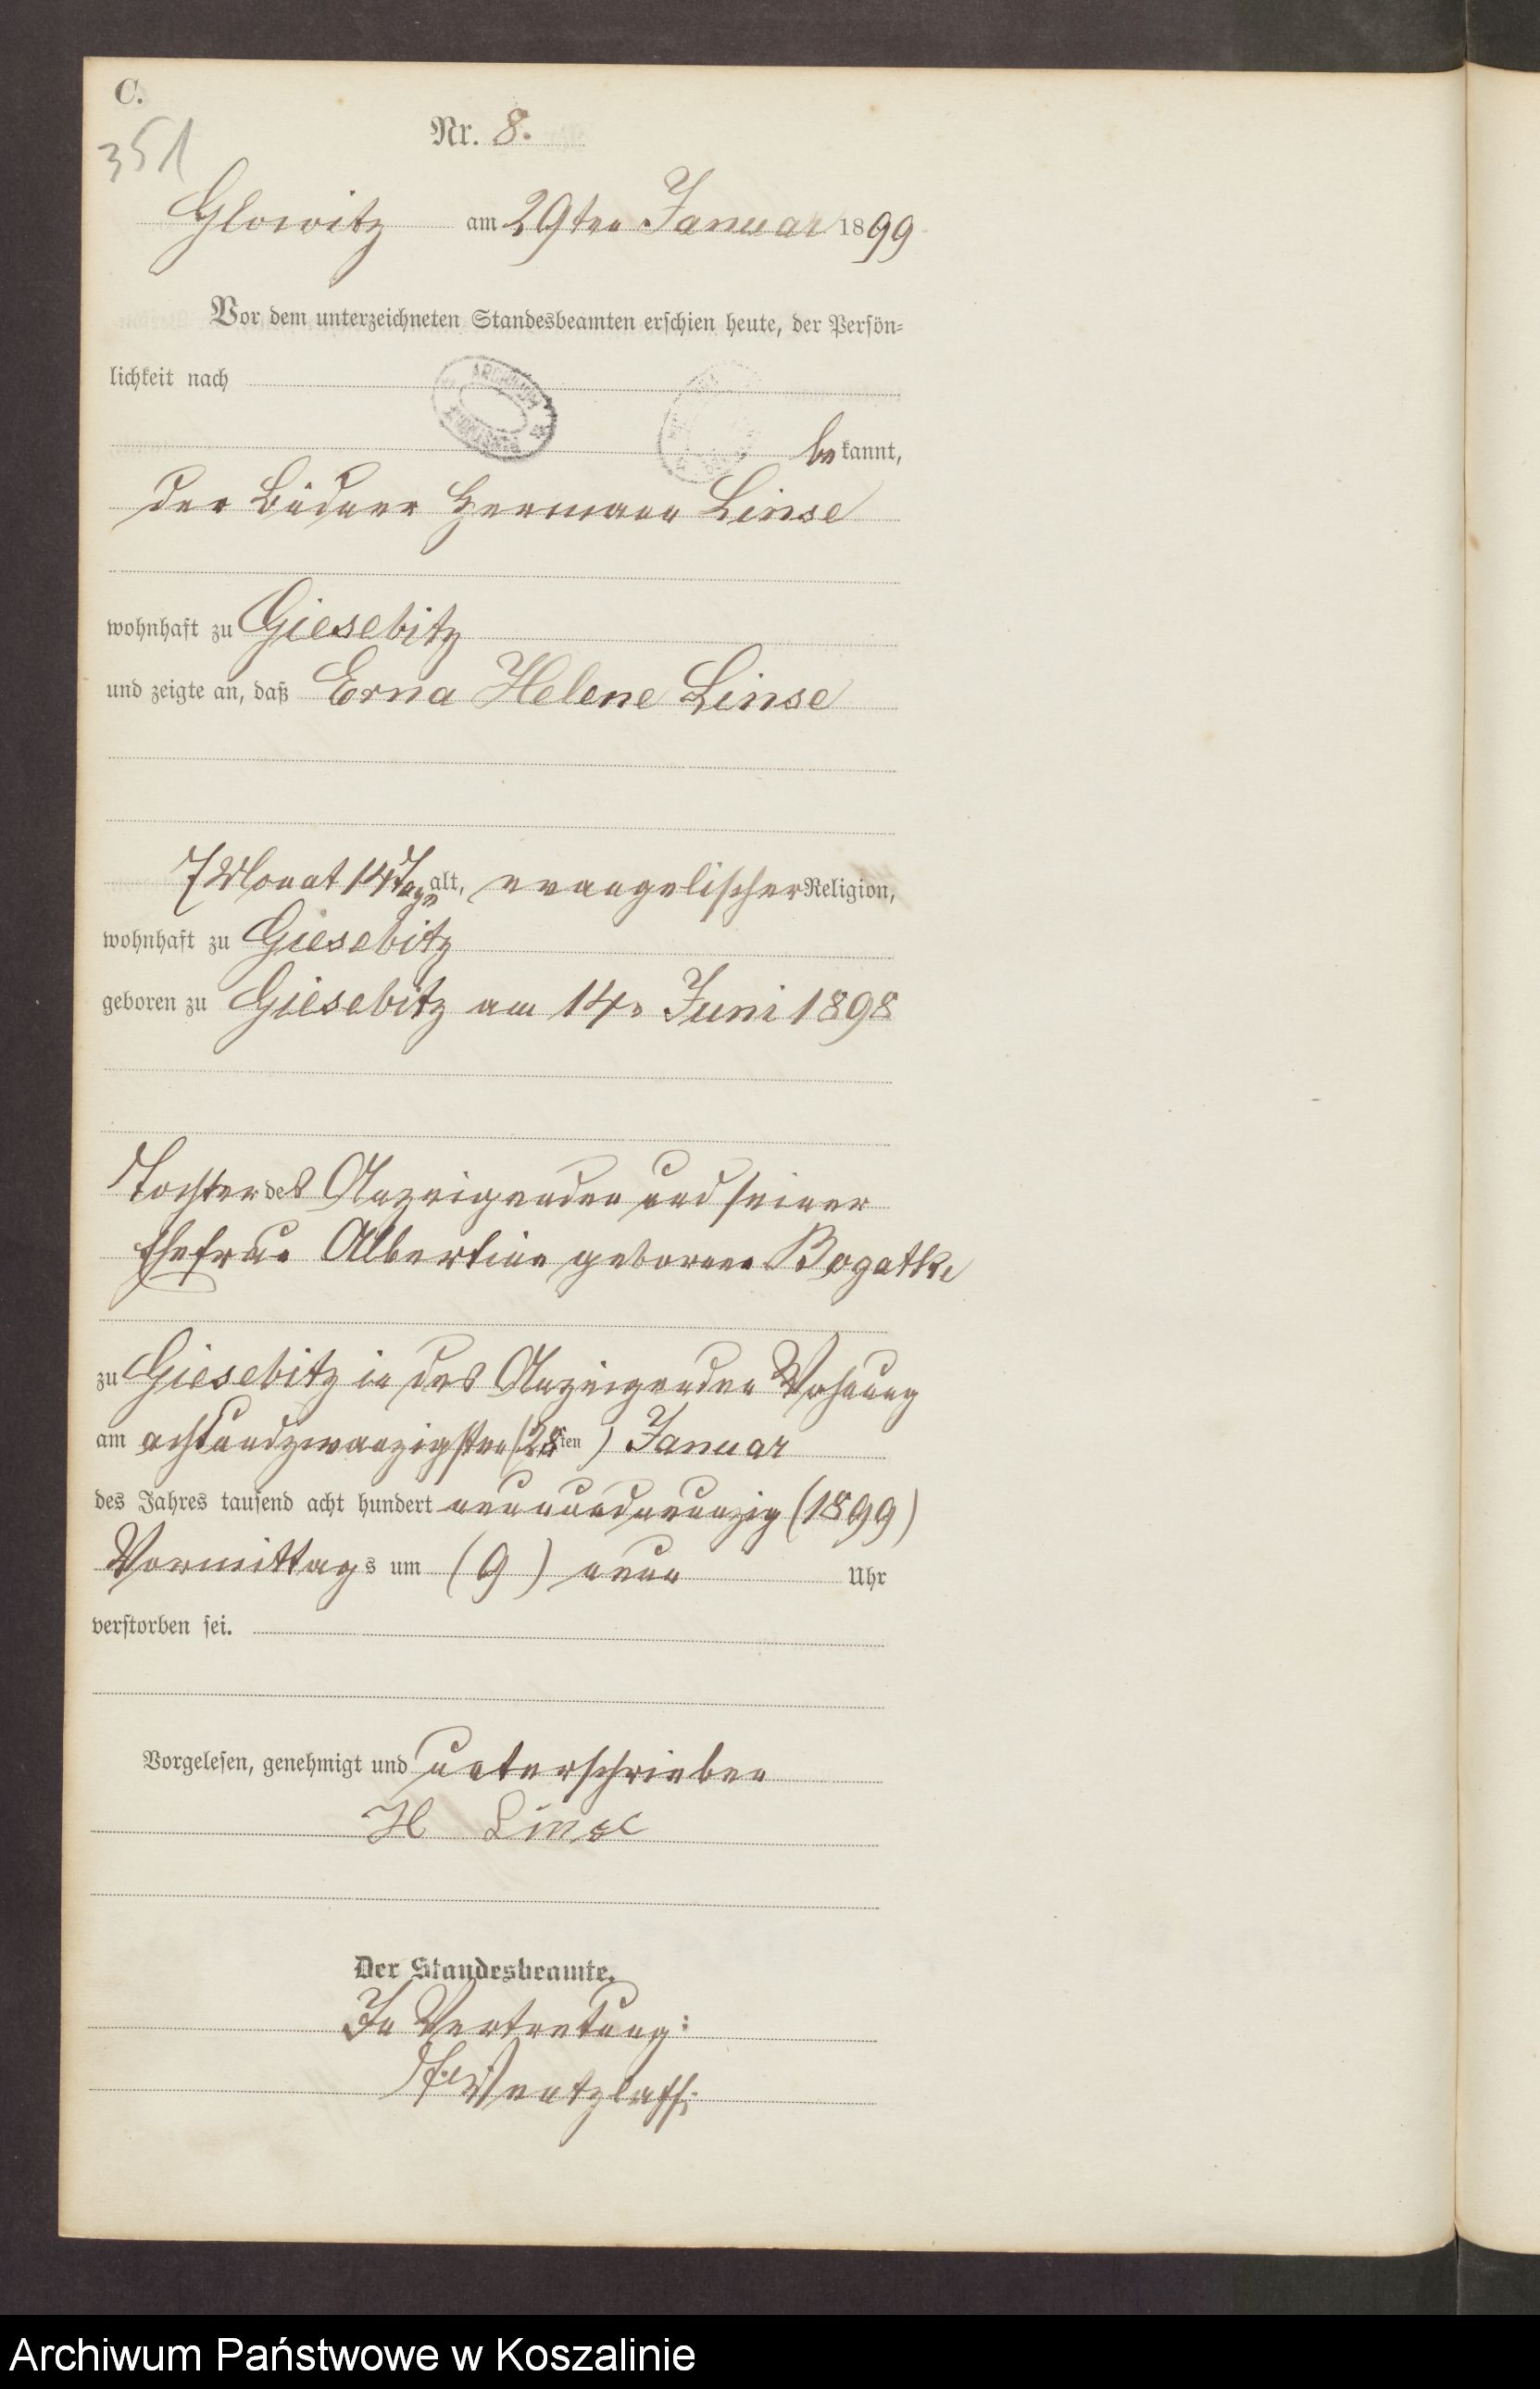 C.
351
Nr. 8.
Glowitz am 29ten Januar 1899
Vor dem unterzeichneten Standesbeamten erschien heute, der Persön=
lichkeit nach
bekannt,
der Büdner Hermann Linse
wohnhaft zu Giesebitz
und zeigte an, daß Erna Helene Linse
7 Monat 14 Tage alt, evangelischer Religion,
wohnhaft zu Giesebitz
geboren zu Giesebitz am 14. Juni 1898
Tochter des Anzeigenden und seiner
Ehefrau Albertine geborene Bogatke
zu Giesebitz in des Anzeigenden Wohnung
am achtundzwanzigsten (28ten) Januar
des Jahres tausend acht hundert neunundneunzig (1899)
Vormittags um (9) neun Uhr
verstorben sei.
Vorgelesen, genehmigt und unterschrieben
H Linse
Der Standesbeamte.
In Vertretung:
Wentzlaff.
Archiwum Państwowe w Koszalinie